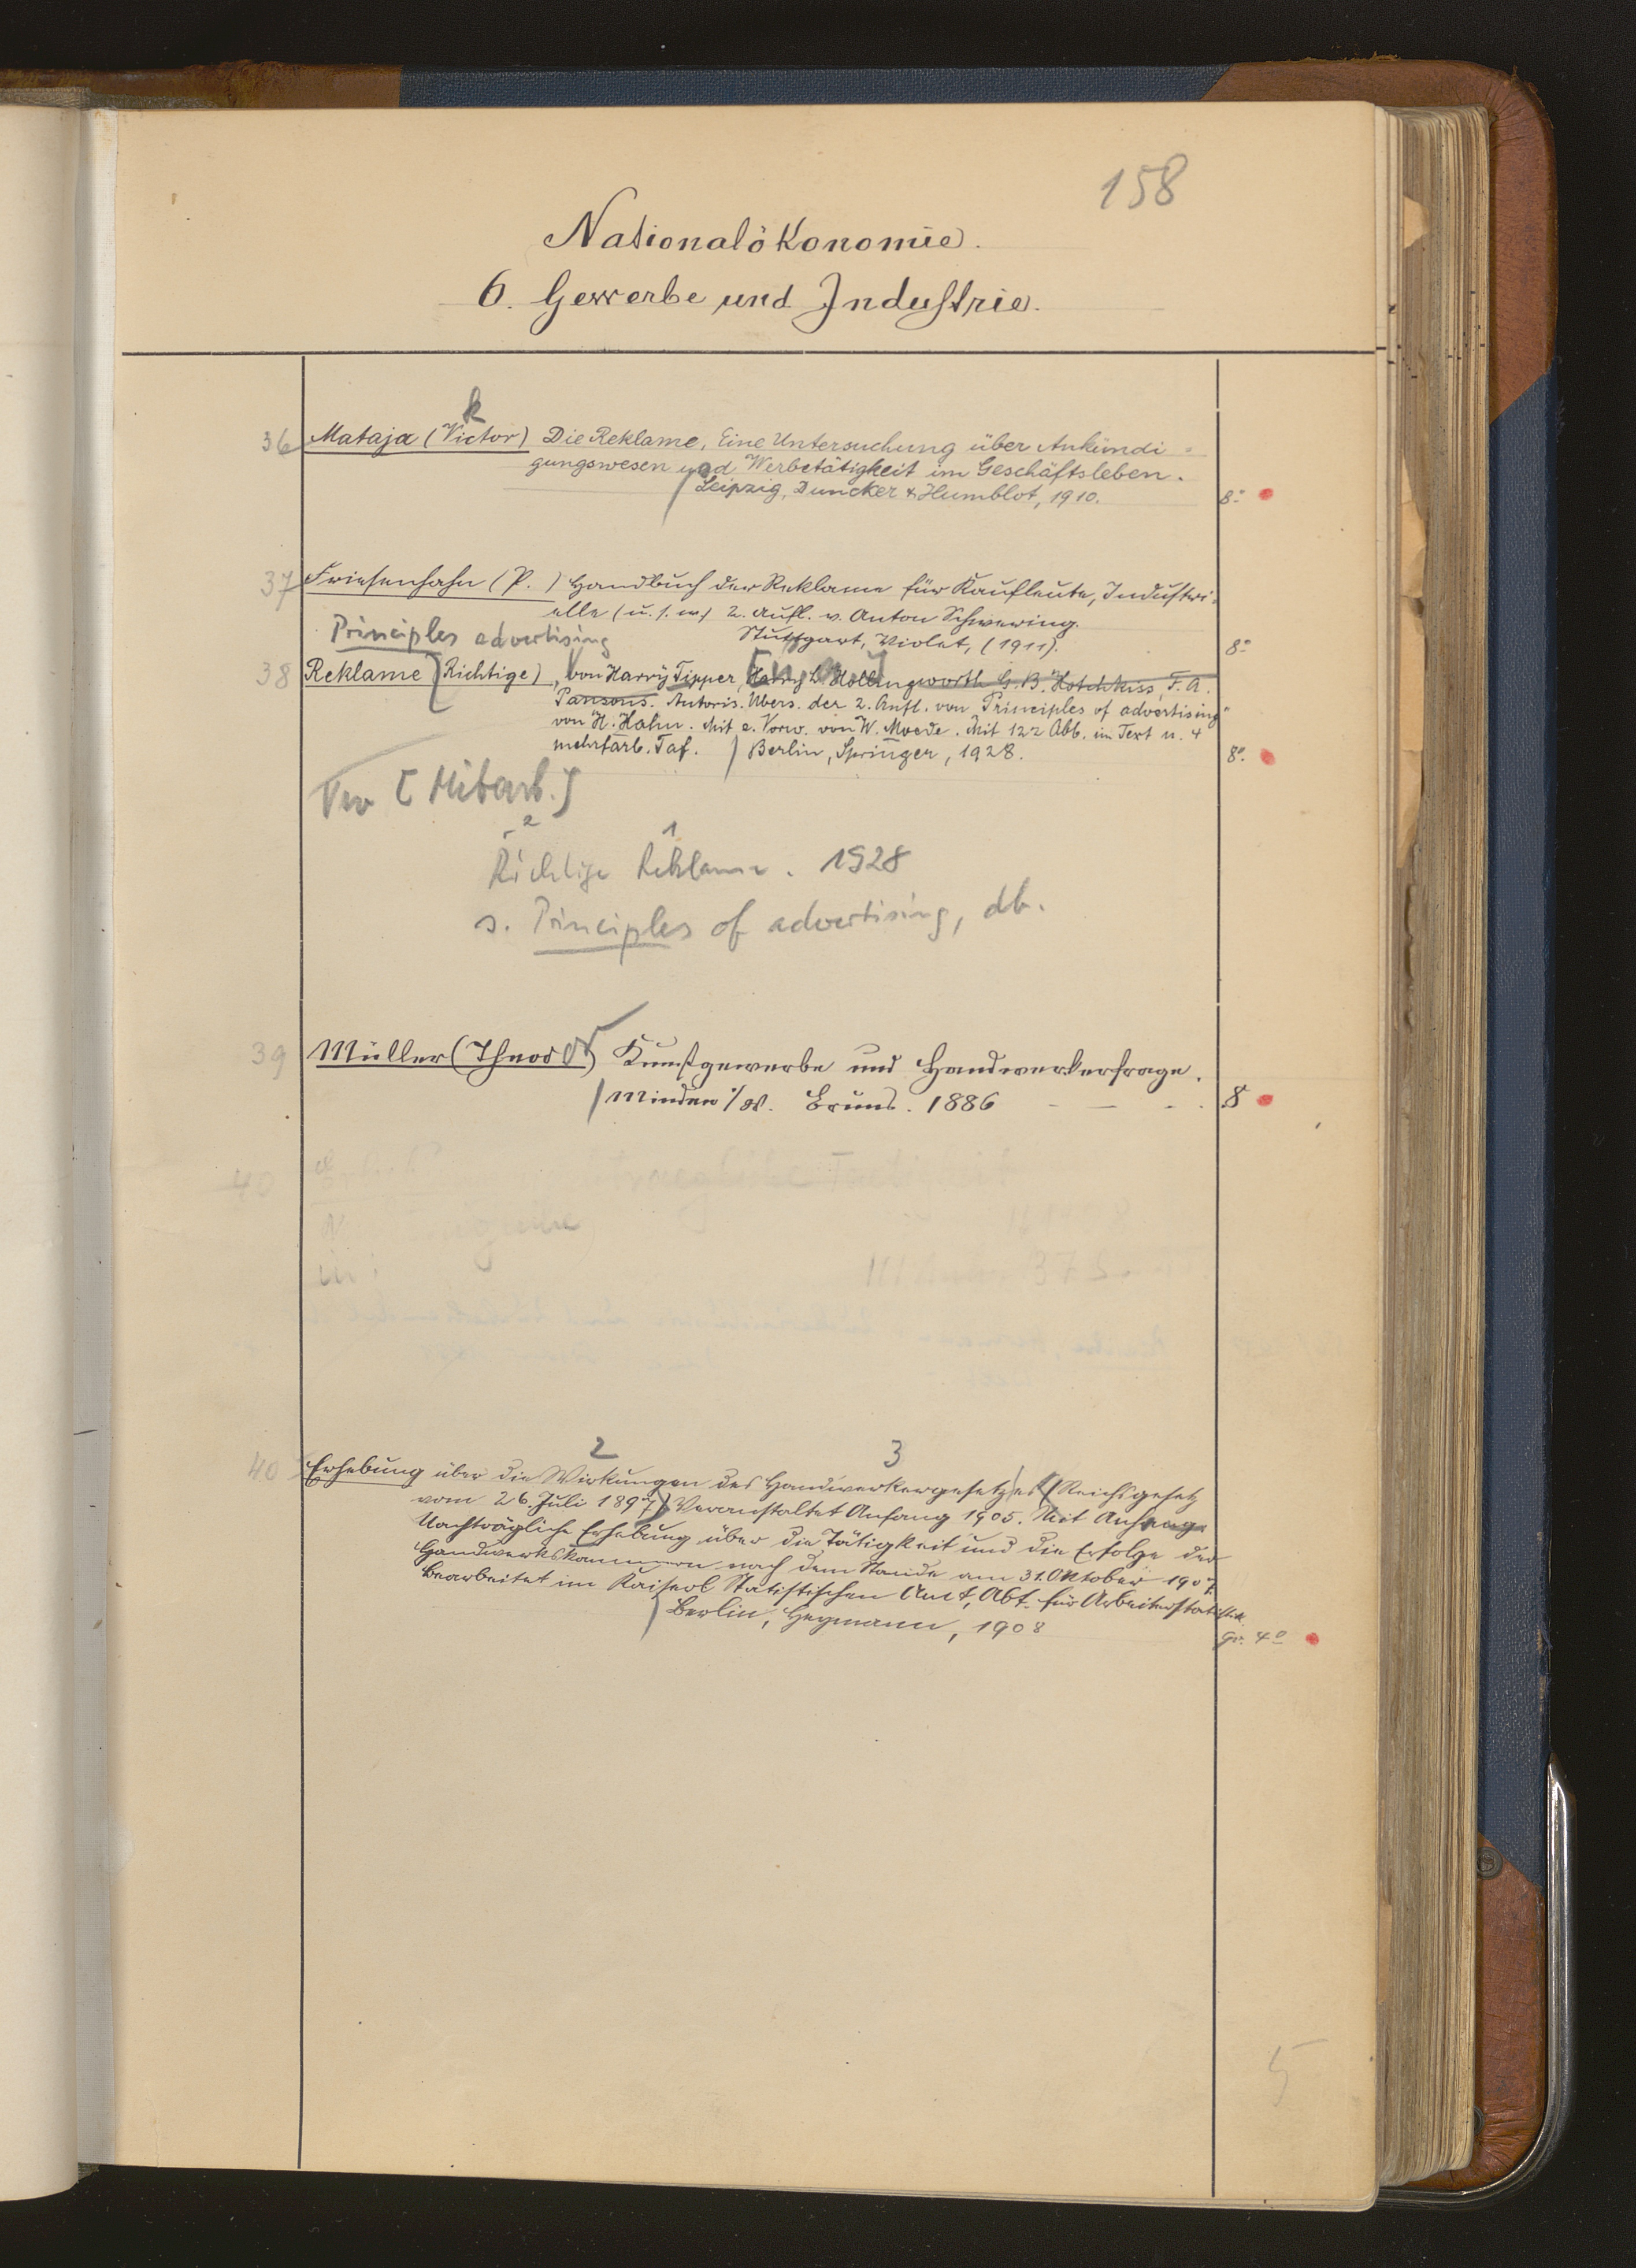 158
Nationalökonomie.
6. Gewerbe und Industrie.
k
36 Mataja (Victor) Die Reklame. Eine Untersuchung über Ankündi-
gungswesen und Werbetätigkeit im Geschäftsleben.
Leipzig, Duncker & Humblot, 1910. 8°
37 Friesenhahn (P.) Handbuch der Reklame für Kaufleute, Industri-
elle (u.s.w) 2. Aufl. v. Anton Schwering.
Stuttgart, Violet, (1911). 8°
Principles advertising
38 Reklame (Richtige), von Harry Tipper, Harry L. Hollingworth G. B. Hotchkiss, F. A.
Parsons. Autoris. Übers. der 2. Aufl. von "Principles of advertising"
von H. Hahn. Mit e. Vorw. von W. Moede. Mit 122 Abb. im Text u. 4
mehrfarb. Taf. Berlin, Springer, 1928. 8°
Ver [Mitarb.]
2 1
Richtige Reklame. 1928
s. Principles of advertising, db.
39 Müller (Theodor) Kunstgewerbe und Handwerkerfrage.
Minden i/W. Bruns. 1886 8
40
in:
2 3
40 Erhebung über die Wirkungen des Handwerkergesetzes (Reichsgesetz
vom 26. Juli 1897) Veranstaltet Anfang 1905. Mit Anhang
Nachträgliche Erhebung über die Tätigkeit und die Erfolge der
Handwerkskammern nach dem Stande am 31. Oktober 1907.
Bearbeitet im Kaiserl Statistischen Amt, Abt. für Arbeiterstatistik
Berlin, Heymann, 1908 Gr. 4°
5